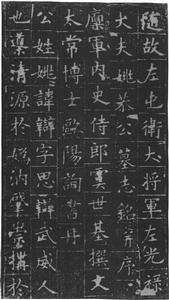 随故左屯衛大將軍左光祿
大夫姚恭公墓志銘并序
麋軍内史侍郎虞世基撰文
太常博士歐陽詢書丹
公姓姚諱辯字思辯武威人
也導清源於媯汭肇崇構於